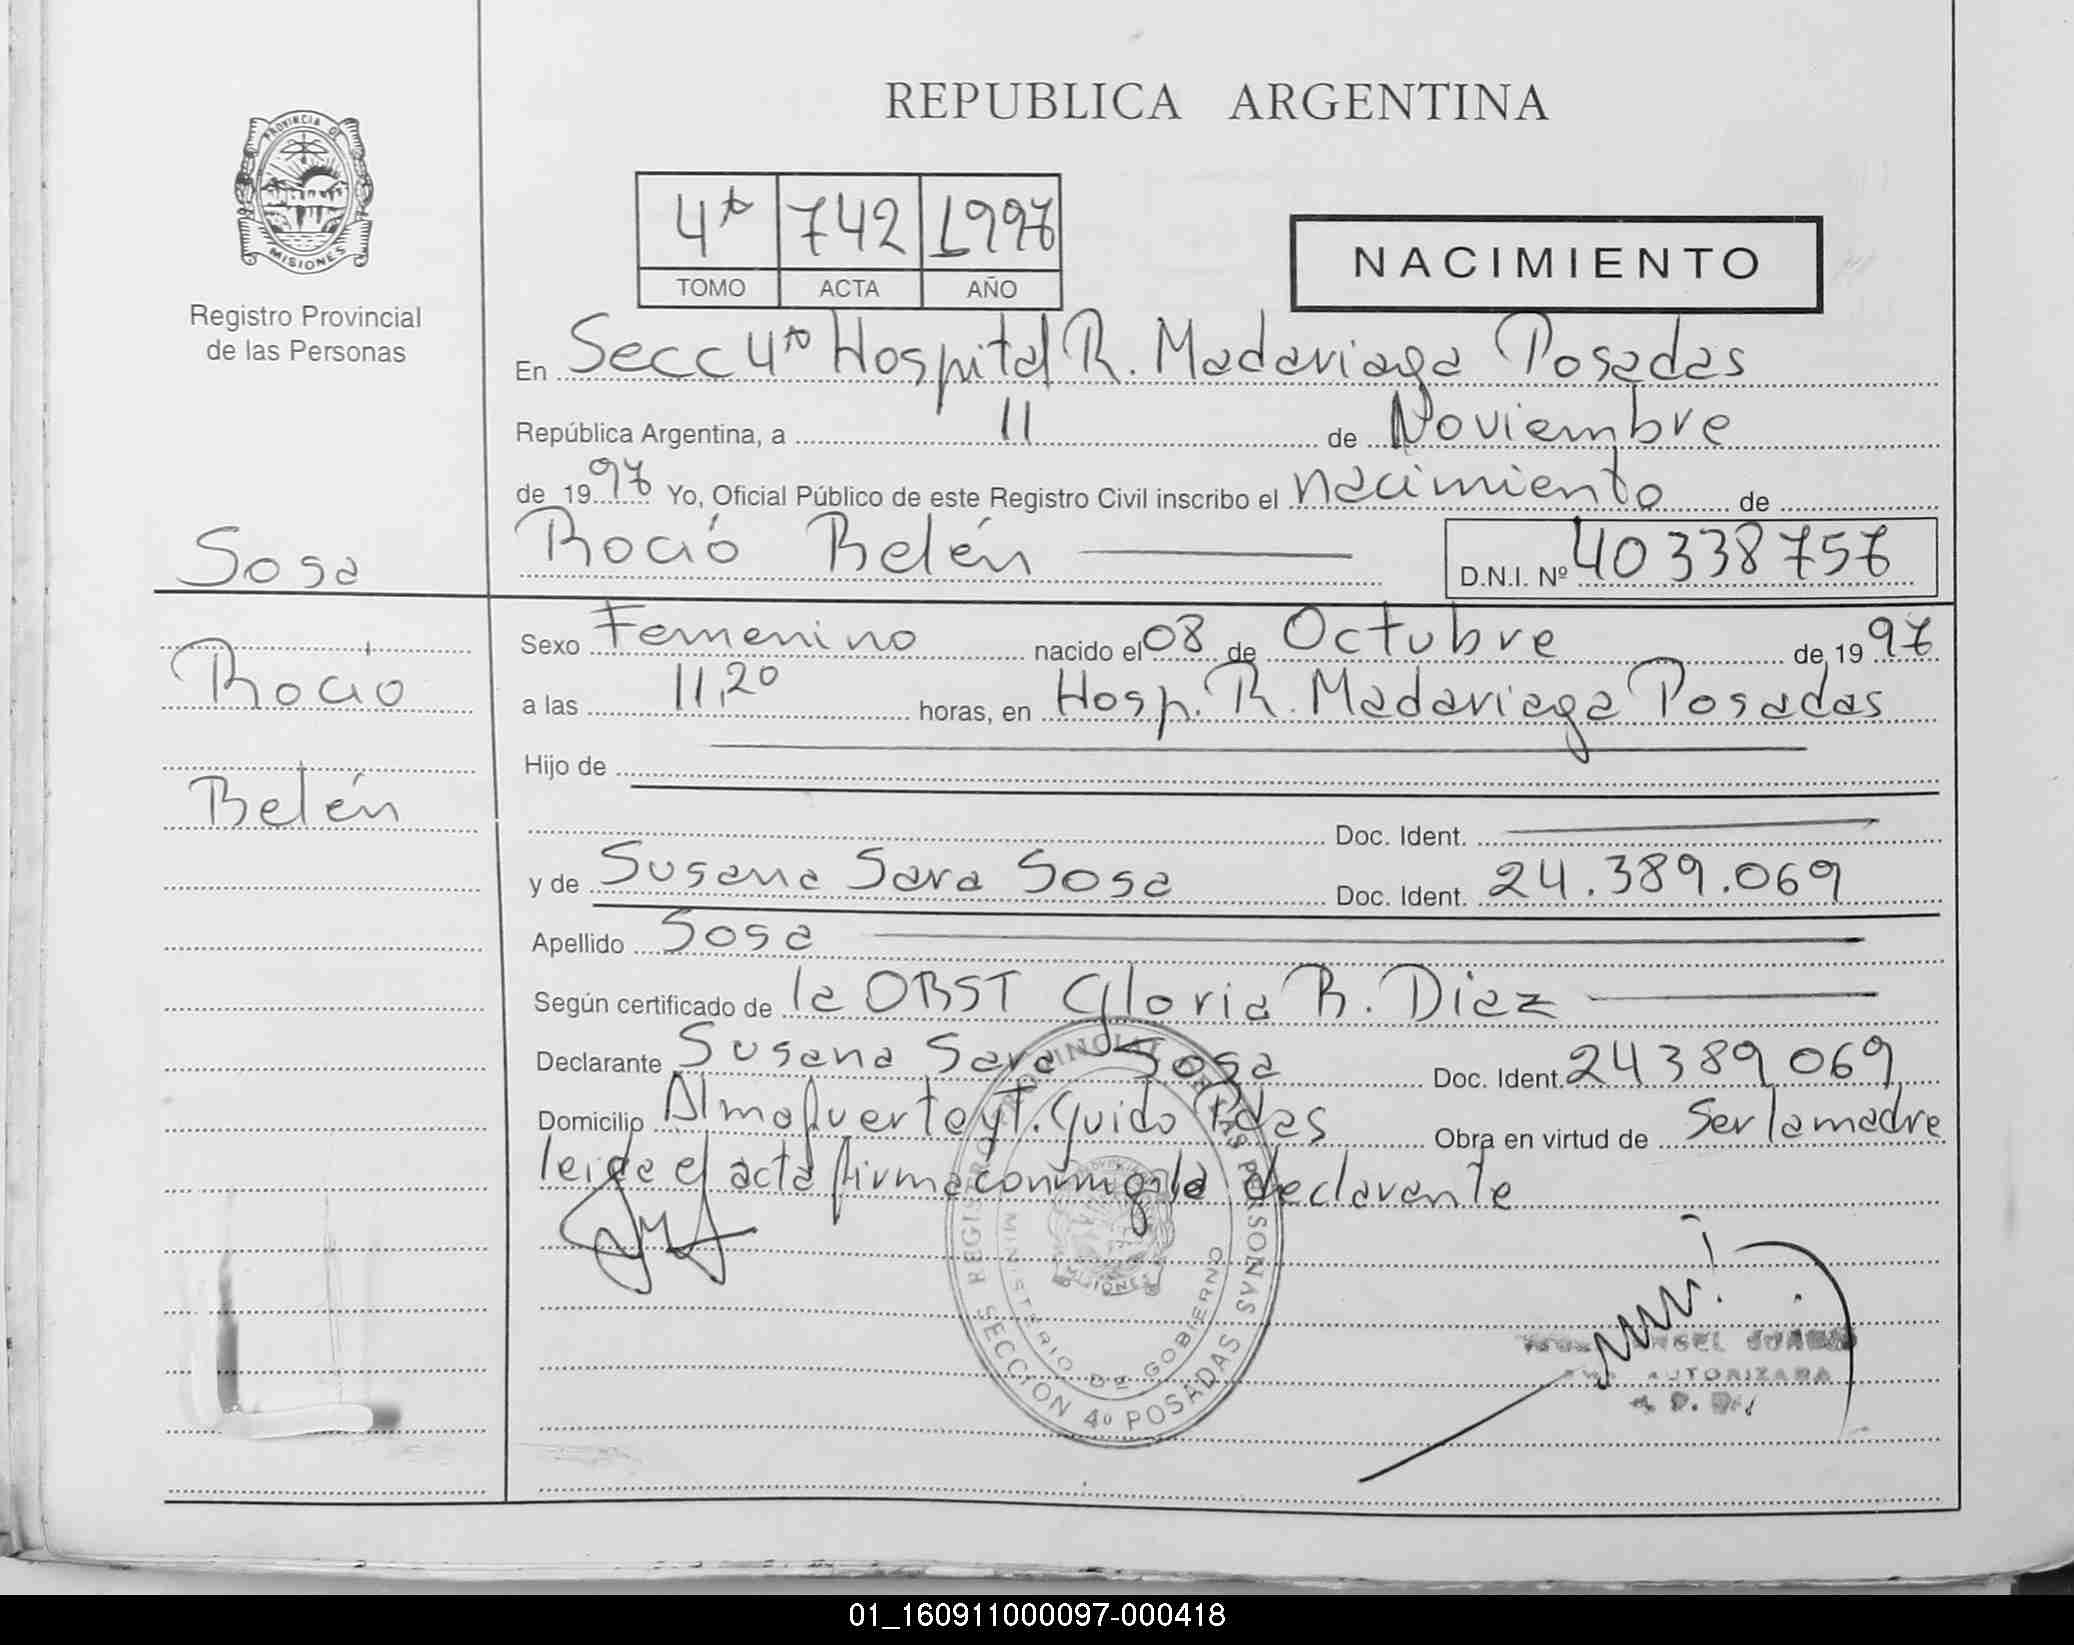 REPUBLICA ARGENTINA
PROVINCIA DE
MISIONES
Registro Provincial
de las Personas
4to 742 1997
TOMO ACTA AÑO
NACIMIENTO
En Secc 4to Hospital R. Madariaga Posadas
República Argentina, a 11 de Noviembre
de 1997 Yo, Oficial Público de este Registro Civil inscribo el nacimiento de
Sosa
Roció Belén D.N.I. Nº 40338757
Rocio
Belén
Sexo Femenino nacido el 08 de Octubre de 1997
a las 11,20 horas, en Hosp. R. Madariaga Posadas
Hijo de
Doc. Ident.
y de Susana Sara Sosa Doc. Ident. 24.389.069
Apellido Sosa
Según certificado de la OBST Gloria R. Diaz
Declarante Susana Sara Sosa Doc. Ident. 24389069
Domicilio Almafuerte y T. Guido Pdas Obra en virtud de Ser la madre
leida el acta firma conmigo la declarante
REGISTRO PROVINCIAL DE LAS PERSONAS
MINISTERIO DE GOBIERNO
MISIONES
SECCION 4º POSADAS
ANGEL
AUTORIZADA
01_160911000097-000418